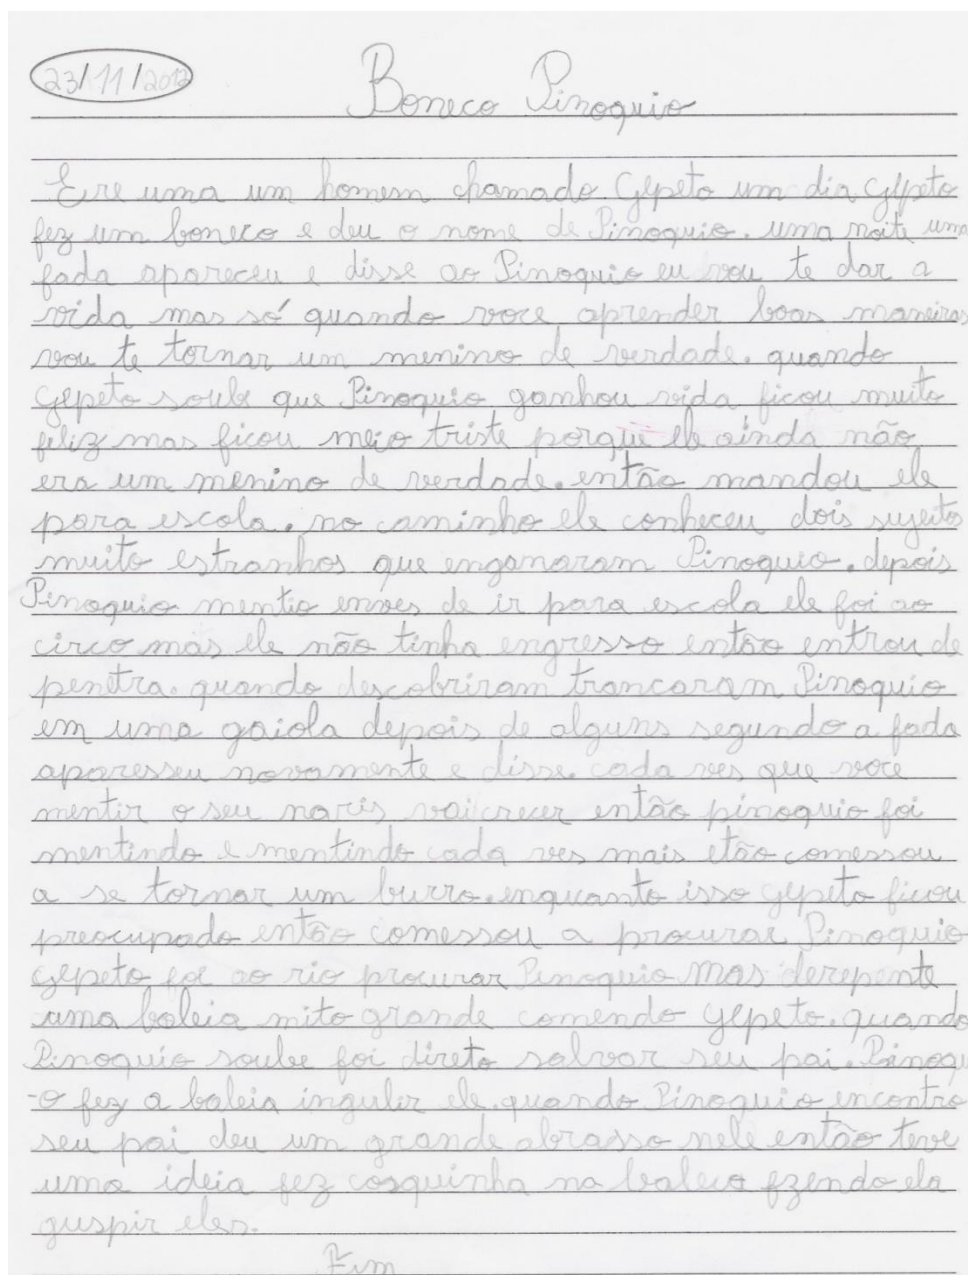 23/11/2012
Boneco Pinoquio
Ere uma um homem chamado Gepeto um dia gepeto
fez um boneco e deu o nome de Pinoquio. uma noite uma
fada apareceu e disse ao Pinoquio eu vou te dar a
vida mas só quando voce aprender boas maneiras
vou te tornar um menino de verdade. quando
gepeto soube que Pinoquio ganhou vida ficou muito
feliz mas ficou meio triste porque ele ainda não
era um menino de verdade. então mandou ele
para escola. no caminho ele conheceu dois sujeitos
muito estranhos que enganaram Pinoquio. depois
Pinoquio mentio enves de ir para escola ele foi ao
circo mas ele não tinha engresso então entrou de
penetra. quando descobriram trancaram Pinoquio
em uma gaiola depois de alguns segundo a fada
aparesseu novamente e disse. cada ves que voce
mentir o seu naris vai crecer então pinoquio foi
mentindo e mentindo cada ves mais etão comessou
a se tornar um burro. enquanto isso gepeto ficou
preocupado então comessou a procurar Pinoquio
gepeto foi ao rio procurar Pinoquio mas derepente
uma baleia mito grande comendo gepeto. quando
Pinoquio soube foi direto salvar seu pai. Pinoqui
-o fez a baleia ingulir ele. quando Pinoquio encontro
seu pai deu um grande abrasso nele então teve
uma ideia fez cosquinha na baleia fzendo ela
guspir eles.
Fim